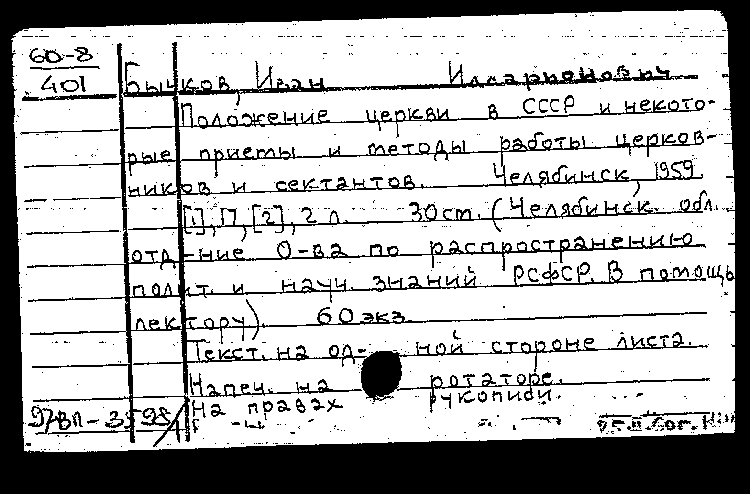 60-8
401
Бычков, Иван Илларионович
Положение церкви в СССР и некото-
рые приемы и методы работы церков-
ников и сектантов. Челябинск, 1959.
[1], 17, [2], 2 л. 30 ст. (Челябинск. обл.
отд-ние О-ва по распространению
полит. и науч. знаний РСФСР. В помощь
лектору). 60 экз.
Текст. на од- ной стороне листа.
Напеч. на ротаторе.
На правах рукописи.
97ВП-3598